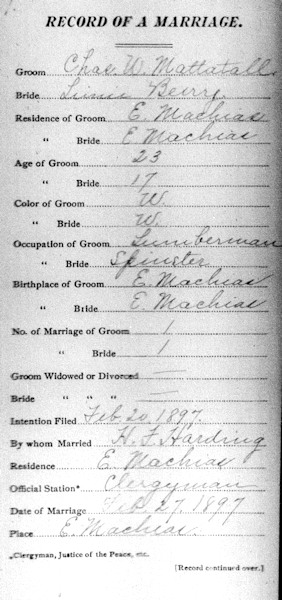 RECORD OF A MARRIAGE.
Groom Chas W. Mattatall
Bride Berry
Residence of Groom E. Machias
" Bride E Machias
Age of Groom 23
" Bride 17
Color of Groom W.
" Bride W.
Occupation of Groom Lumberman
" Bride Spinster
Birthplace of Groom E. Machias
" Bride E. Machias
No. of Marriage of Groom 1
" Bride 1
Groom Widowed or Divorced —
Bride " " " —
Intention Filed Feb. 20, 1897.
By whom Married H. F. Harding
Residence E. Machias
Official Station* Clergyman
Date of Marriage Feb. 27, 1897
Place E. Machias.
*Clergyman, Justice of the Peace, etc.
[Record continued over.]